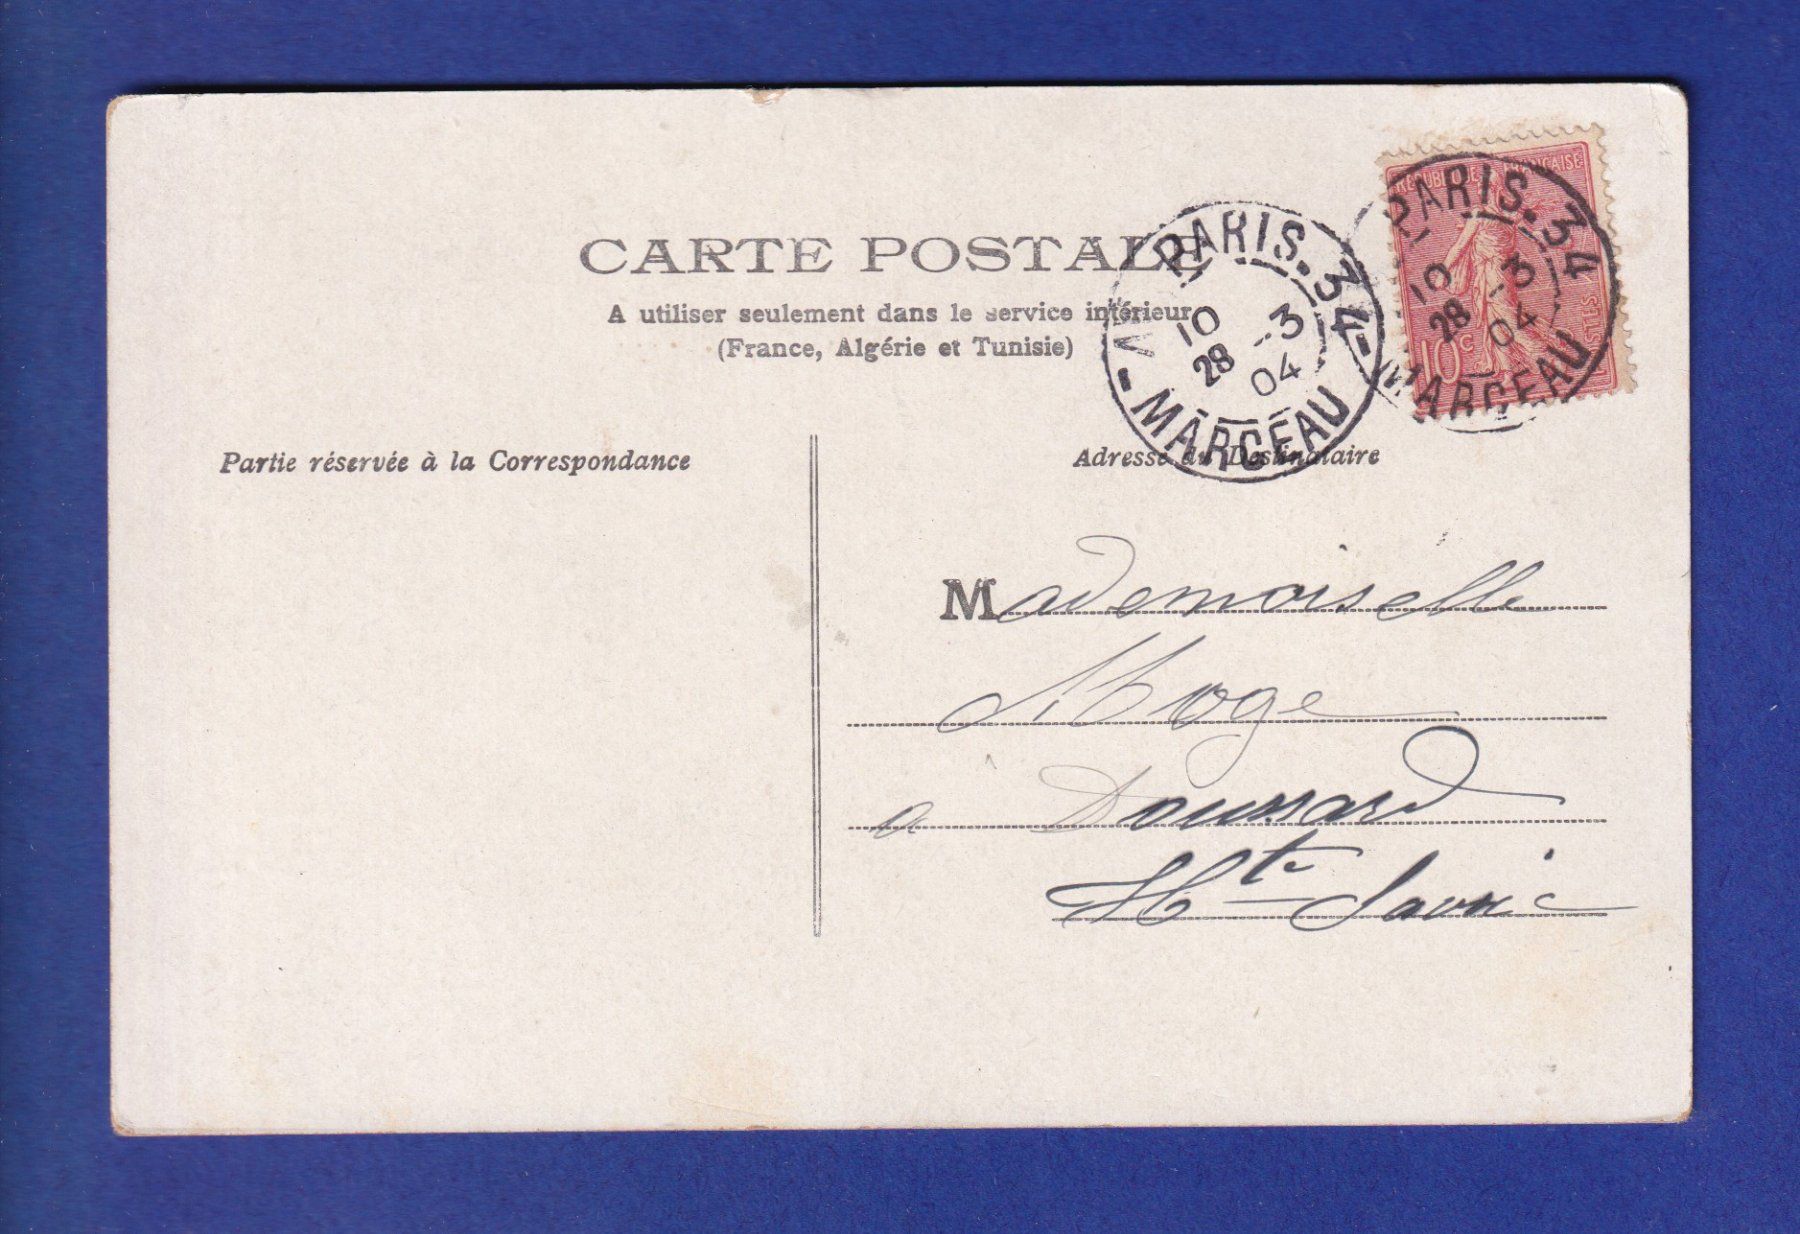 CARTE POSTALE
A utiliser seulement dans le service intérieur
(France, Algérie et Tunisie)
PARIS. 34
10 -3
28 04
AV
- MARCEAU -
RÉPUBLIQUE FRANÇAISE
PARIS. 34
10 -3
28 04
10c
POSTES
MARCEAU
Partie réservée à la Correspondance
Adresse du Destinataire
Mademoiselle
à Doussard
Hte Savoie